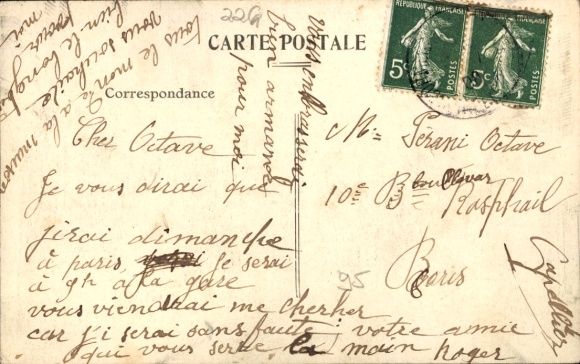 226
CARTE POSTALE
RÉPUBLIQUE FRANÇAISE
5c
POSTES
RÉPUBLIQUE FRANÇAISE
5c
POSTES
Correspondance
Cher Octave
Je vous dirai que
jirai dimanche
à paris je serai
à 9h a la gare
vous viendrai me cherher
car j'i serai sans faute votre amie
qui vous serre la main Roger
tous le monde a la
vous souhaite
bien le bonjour
pour moi
vous embraserai
bien armance
pour moi
Mr Perani Octave
10 Bd boullevar
Rasphail
Paris
95